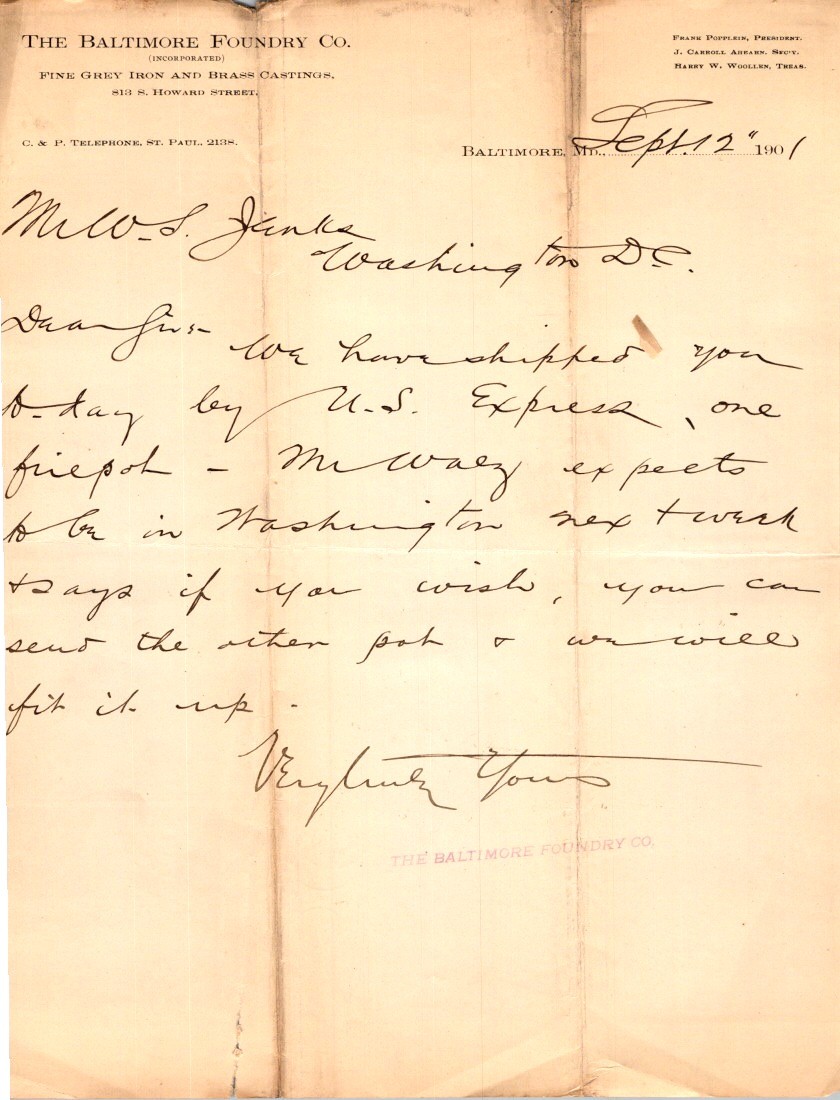 THE BALTIMORE FOUNDRY CO.
(INCORPORATED)
FINE GREY IRON AND BRASS CASTINGS,
813 S. HOWARD STREET.
C. & P. TELEPHONE, ST. PAUL, 2138.
FRANK POPPLEIN, PRESIDENT.
J. CARROLL AHEARN. SEC'Y.
HARRY W. WOOLLEN, TREAS.
BALTIMORE, MD., Sept. 12" 1901
Mr W. S. Jenks
Washington D.C.
Dear Sir:-
We have shipped you
to-day by U.S. Express, one
firepot - Mr Walz expects
to be in Washington next week
& says if you wish, you can
send the other pot & we will
fit it up -
Very truly Yours
THE BALTIMORE FOUNDRY CO.